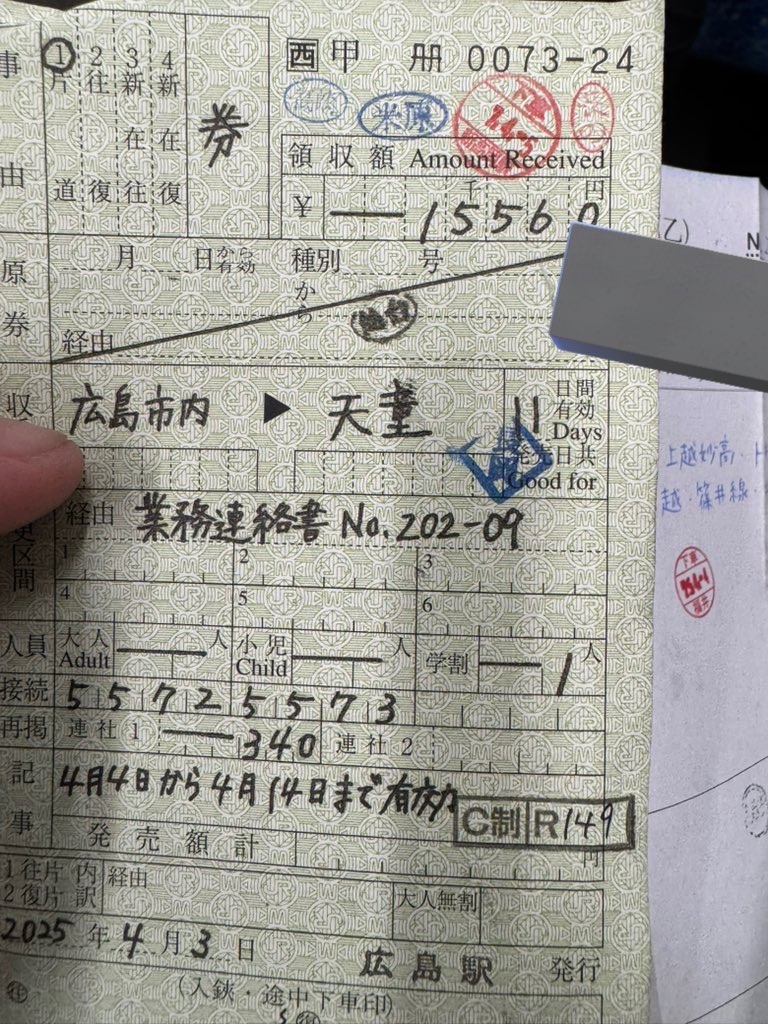 事 1片道 2往復 3新在往 4新在復 券 西 甲 册 0073-24
米原
由 領収額 Amount Received
千 円
¥ — 15560
月 日から有効 種別 号
原券 から 仙台
経由
収 広島市内 ▶ 天童 11 日間有効 Days
発売日共 Good for
経由 業務連絡書 No. 202-09
更区間 1 2 3
4 5 6
人員 大人 Adult — 人 小児 Child — 人 学割 — 1 人
接続 5 5 7 2 5 5 7 3
再掲 連社1 — 340 連社2
記 4月4日から4月14日まで有効
C制 R149
事 発売額計 円
1往片 2復片 内訳 経由 大人無割
2025年4月3日 広島駅 発行
(入鋏・途中下車印)
乙) N
上越妙高
越・篠井線
下車
福井